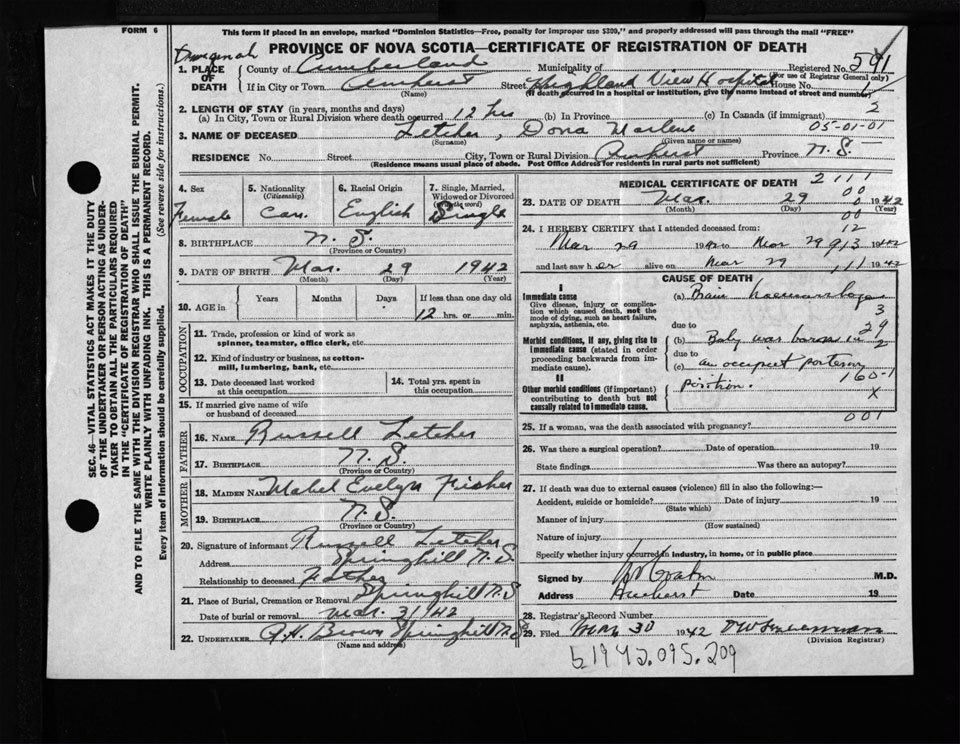 This form if placed in an envelope, marked "Dominion Statistics—Free, penalty for improper use $300," and properly addressed will pass through the mail "FREE"
FORM 6
PROVINCE OF NOVA SCOTIA—CERTIFICATE OF REGISTRATION OF DEATH
1. PLACE OF DEATH
County of Cumberland Municipality of Registered No. 591
(For use of Registrar General only)
If in City or Town Amherst Street Highland View Hospital House No.
(Name) (If death occurred in a hospital or institution, give the name instead of street and number)
2. LENGTH OF STAY (in years, months and days)
(a) In City, Town or Rural Division where death occurred 12 hrs (b) In Province (c) In Canada (if immigrant) 2
3. NAME OF DECEASED Letcher, Dona Marlene 05-01-01
(Surname) (Given name or names)
RESIDENCE No. Street City, Town or Rural Division Amherst Province N.S.
(Residence means usual place of abode. Post Office Address for Residents in rural parts not sufficient)
4. Sex Female
5. Nationality (Citizenship) Can.
6. Racial Origin English
7. Single, Married, Widowed or Divorced (write the word) Single
8. BIRTHPLACE N.S.
(Province or Country)
9. DATE OF BIRTH Mar. 29 1942
(Month) (Day) (Year)
10. AGE in Years Months Days If less than one day old
12 hrs. or min.
OCCUPATION
11. Trade, profession or kind of work as spinner, teamster, office clerk, etc.
12. Kind of industry or business, as cotton-mill, lumbering, bank, etc.
13. Date deceased last worked at this occupation
14. Total yrs. spent in this occupation
15. If married give name of wife or husband of deceased
FATHER
16. NAME Russell Letcher
17. BIRTHPLACE N.S.
(Province or Country)
MOTHER
18. MAIDEN NAME Mabel Evelyn Fisher
19. BIRTHPLACE N.S.
(Province or Country)
20. Signature of informant Russell Letcher
Address Springhill N.S
Relationship to deceased Father
21. Place of Burial, Cremation or Removal Springhill N.S
Date of burial or removal Mar. 31/42
22. UNDERTAKER A.H. Brown Springhill N.S
(Name and address)
MEDICAL CERTIFICATE OF DEATH 2111
00
23. DATE OF DEATH Mar. 29 1942
(Month) (Day) (Year)
00
24. I HEREBY CERTIFY that I attended deceased from: 12
Mar 29 1942 to Mar 29 913 1942
and last saw her alive on Mar 29, 111 1942
CAUSE OF DEATH
I
Immediate cause
Give disease, injury or complication which caused death, not the mode of dying, such as heart failure, asphyxia, asthenia, etc.
(a) Brain haemorrhage
3
due to 29
Morbid conditions, if any, giving rise to immediate cause (stated in order proceeding backwards from immediate cause).
(b) Baby was born in 2
due to
(c) an occipit posterior
position. 160-1
II
Other morbid conditions (if important) contributing to death but not causally related to immediate cause.
X
001
25. If a woman, was the death associated with pregnancy?
26. Was there a surgical operation? Date of operation 19
State findings Was there an autopsy?
27. If death was due to external causes (violence) fill in also the following:—
Accident, suicide or homicide? Date of injury 19
(State which)
Manner of injury
(How sustained)
Nature of injury
Specify whether injury occurred in industry, in home, or in public place
Signed by M.D.
Address Amherst Date 19
28. Registrar's Record Number
29. Filed Mar 30 1942
(Division Registrar)
1942.095.209
SEC. 46—VITAL STATISTICS ACT MAKES IT THE DUTY
OF THE UNDERTAKER OR PERSON ACTING AS UNDER-
TAKER TO OBTAIN ALL THE PARTICULARS REQUIRED
IN THE "CERTIFICATE OF REGISTRATION OF DEATH"
AND TO FILE THE SAME WITH THE DIVISION REGISTRAR WHO SHALL ISSUE THE BURIAL PERMIT.
WRITE PLAINLY WITH UNFADING INK. THIS IS A PERMANENT RECORD.
Every item of information should be carefully supplied. (See reverse side for instructions.)